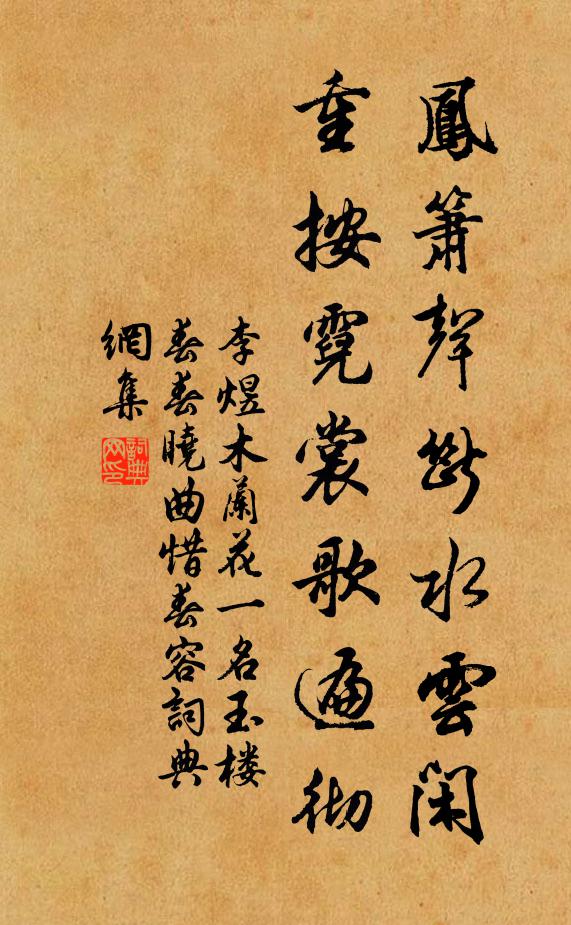 鳳簫聲斷水雲閑
重按霓裳歌遍彻
李煜木蘭花一名玉楼
春春曉曲惜春容詞典
網集
詞典
网印